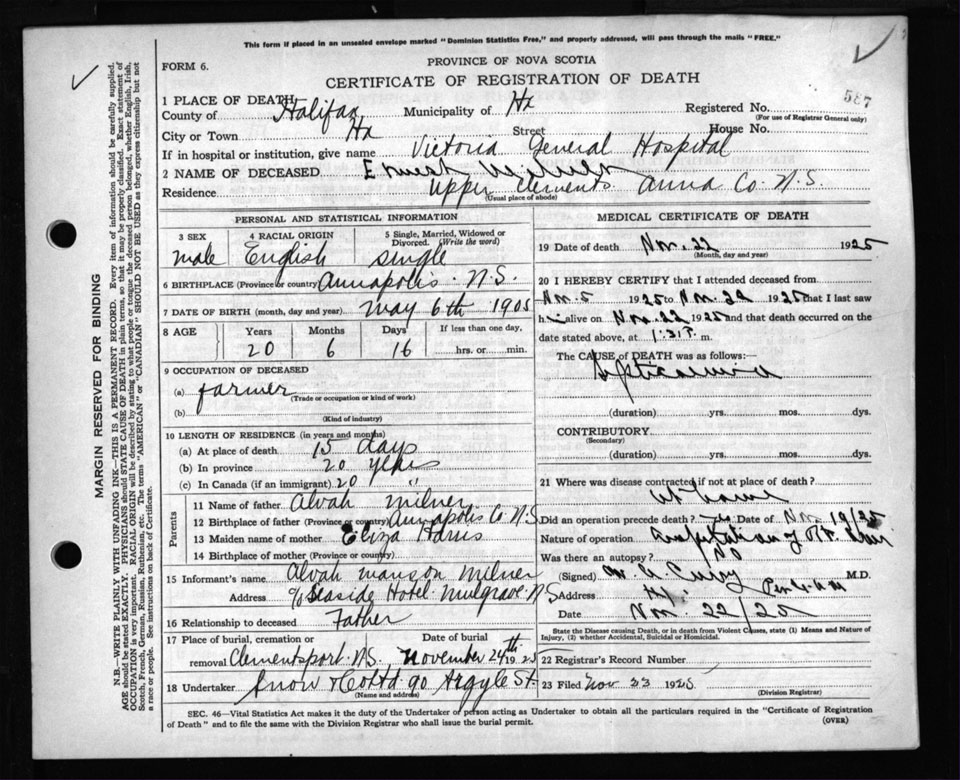 This form if placed in an unsealed envelope marked "Dominion Statistics Free," and properly addressed, will pass through the mails "FREE."
FORM 6.
PROVINCE OF NOVA SCOTIA
CERTIFICATE OF REGISTRATION OF DEATH
587
1 PLACE OF DEATH
County of Halifax Municipality of Hx Registered No.
(For use of Registrar General only)
City or Town Hx Street House No.
If in hospital or institution, give name Victoria General Hospital
2 NAME OF DECEASED Ernest Milner
Residence Upper Clements Anna Co. N.S.
(Usual place of abode)
MARGIN RESERVED FOR BINDING
N.B.—WRITE PLAINLY WITH UNFADING INK—THIS IS A PERMANENT RECORD. Every item of information should be carefully supplied.
AGE should be stated EXACTLY. PHYSICIANS should STATE CAUSE OF DEATH in plain terms, so that it may be properly classified. Exact statement of
OCCUPATION is very important. RACIAL ORIGIN will be described by stating to what people or tongue the deceased person belonged, whether English, Irish,
Scotch, French, German, Russian, Ruthenian, etc. The terms "AMERICAN" or "CANADIAN" SHOULD NOT BE USED as they express citizenship but not
a race or people. See instructions on back of Certificate.
PERSONAL AND STATISTICAL INFORMATION
3 SEX 4 RACIAL ORIGIN 5 Single, Married, Widowed or
Divorced. (Write the word)
male English single
6 BIRTHPLACE (Province or country) Annapolis. N.S.
7 DATE OF BIRTH (month, day and year) May 6th 1905
8 AGE Years Months Days If less than one day,
20 6 16 hrs. or min.
9 OCCUPATION OF DECEASED
(a) farmer
(Trade or occupation or kind of work)
(b)
(Kind of industry)
10 LENGTH OF RESIDENCE (in years and months)
(a) At place of death 15 days
(b) In province 20 years
(c) In Canada (if an immigrant) 20 "
Parents
11 Name of father Alvah Milner
12 Birthplace of father (Province or country) Annapolis Co N.S
13 Maiden name of mother Eliza Harris
14 Birthplace of mother (Province or country)
15 Informant's name Alvah Manson Milner
Address c/o Seaside Hotel. Mulgrave. N.S
16 Relationship to deceased Father
17 Place of burial, cremation or Date of burial
removal Clementsport. N.S. November 24th 1925
18 Undertaker Snow & Co Ltd 90 Argyle St.
(Name and address)
MEDICAL CERTIFICATE OF DEATH
19 Date of death Nov. 22 1925
(Month, day and year)
20 I HEREBY CERTIFY that I attended deceased from
Nov. 5 1925 to Nov. 22 1925 that I last saw
h alive on Nov. 22 1925 and that death occurred on the
date stated above, at 1:31 P. m.
The CAUSE of DEATH was as follows:
Septicaemia
(duration) yrs. mos. dys.
CONTRIBUTORY
(Secondary)
(duration) yrs. mos. dys.
21 Where was disease contracted if not at place of death?
At home
Did an operation precede death? yes Date of Nov. 19/25
Nature of operation Amputation of
Was there an autopsy? No
(Signed) Curry M.D.
Address Hx.
Date Nov. 22/25
State the Disease causing Death, or in death from Violent Causes, state (1) Means and Nature of
Injury, (2) whether Accidental, Suicidal or Homicidal.
22 Registrar's Record Number
23 Filed Nov 23 1925
(Division Registrar)
SEC. 46—Vital Statistics Act makes it the duty of the Undertaker or person acting as Undertaker to obtain all the particulars required in the "Certificate of Registration
of Death" and to file the same with the Division Registrar who shall issue the burial permit.
(OVER)